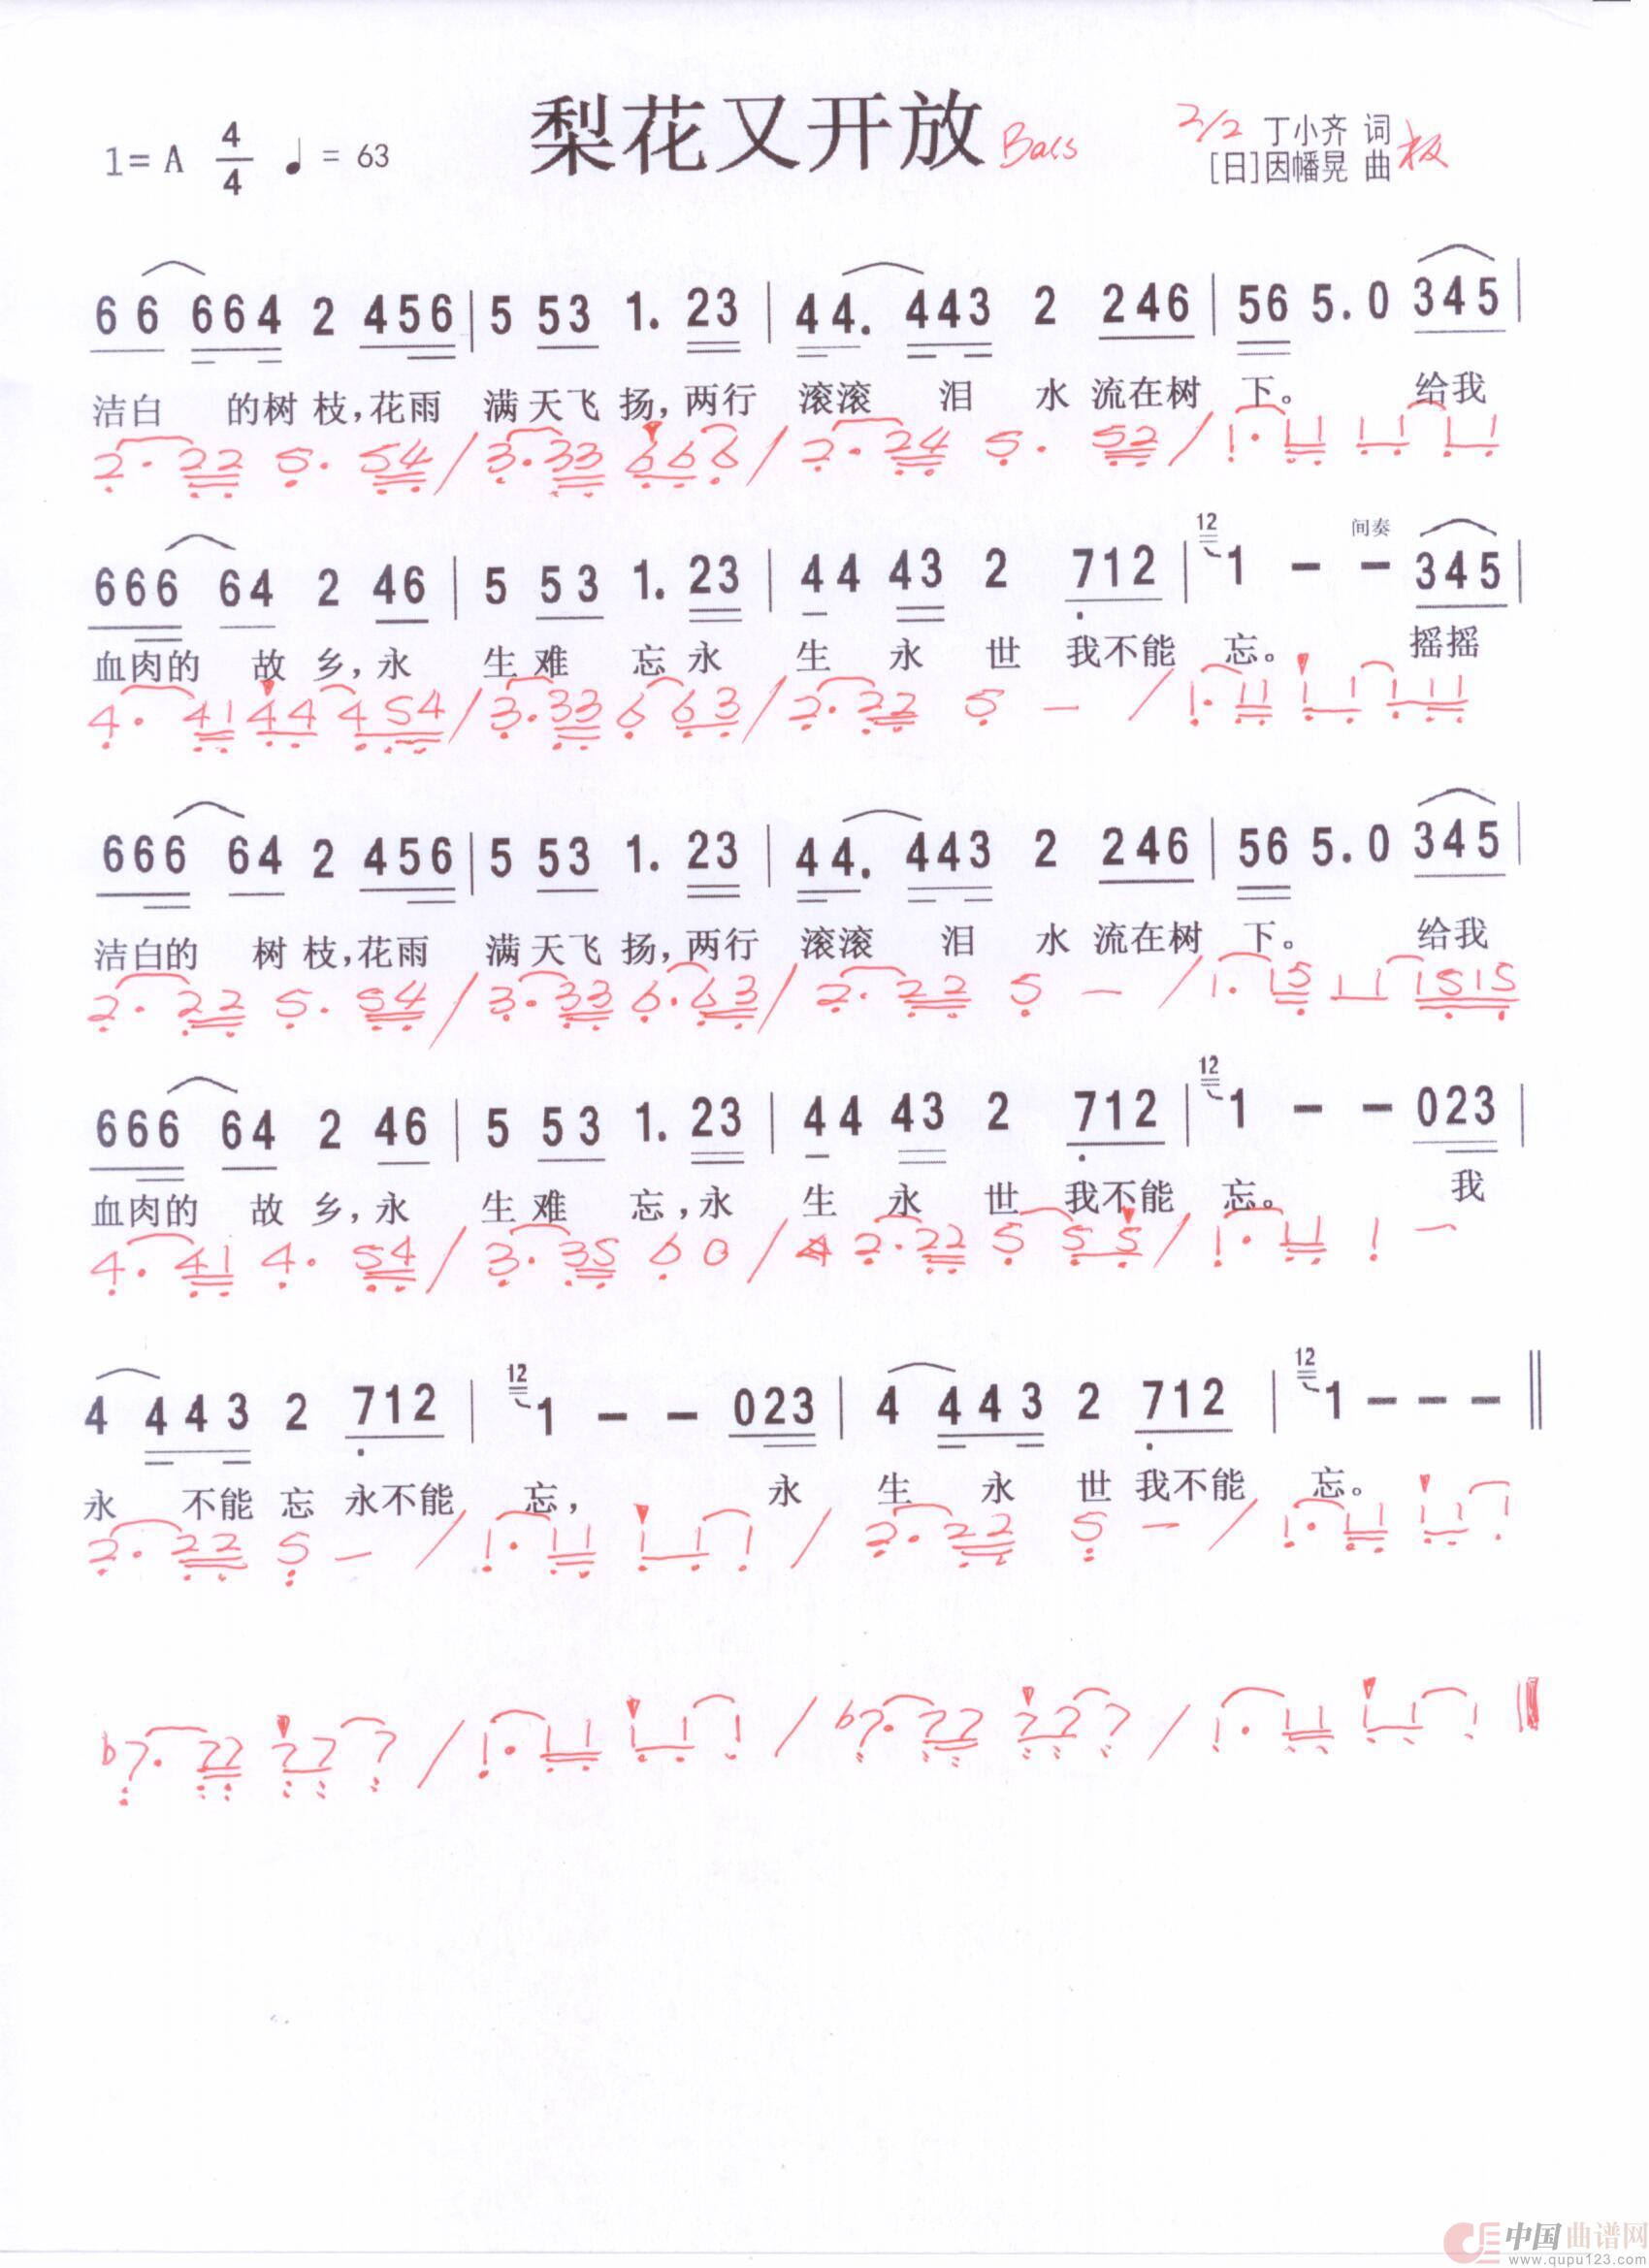 梨花又开放 Bacs
1=A 4/4 ♩=63
2/2 丁小齐 词
[日]因幡晃 曲 板
66 664 2 456 | 5 53 1. 23 | 44. 443 2 246 | 56 5. 0 345 |
洁白 的树枝,花雨 满天飞扬,两行 滚滚 泪 水流在树 下。 给我
2. 22 5. 54 / 3. 33 6 6 6 / 2. 24 5. 52 / 1. 11 1 1 1 1
12 间奏
666 64 2 46 | 5 53 1. 23 | 44 43 2 712 | 1 - - 345 |
血肉的 故乡,永 生难 忘永 生 永 世 我不能 忘。 摇摇
4. 41 44 454 / 3. 33 6 63 / 2. 22 5 - / 1. 11 1 1 1 11
666 64 2 456 | 5 53 1. 23 | 44. 443 2 246 | 56 5. 0 345 |
洁白的 树枝,花雨 满天飞扬,两行 滚滚 泪 水流在树 下。 给我
2. 22 5. 54 / 3. 33 6. 63 / 2. 22 5 - / 1. 15 11 1515
12
666 64 2 46 | 5 53 1. 23 | 44 43 2 712 | 1 - - 023 |
血肉的 故乡,永 生难 忘,永 生 永 世 我不能 忘。 我
4. 41 4. 54 / 3. 35 6 0 / 2. 22 5 55 / 1. 11 1 -
12 12
4 443 2 712 | 1 - - 023 | 4 443 2 712 | 1 - - - ‖
永 不能忘 永不能 忘, 永 生 永 世我不能 忘。
2. 22 5 - / 1. 11 1 1 1 / 2. 22 5 - / 1. 11 1 1 1
b7. 77 77 7 / 1. 11 1 1 1 / b7. 77 77 7 / 1. 11 1 1 1 ‖
中国曲谱网
www.qupu123.com